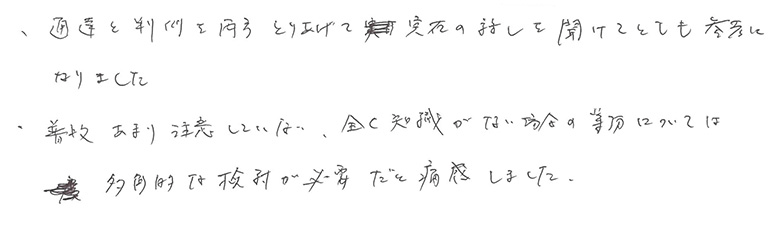 、通達と判例を両方とりあげて実在の話しを聞けてとても参考に
なりました
・普段あまり注意していない、全く知識がない場合の業務については
多角的な検討が必要だと痛感しました。